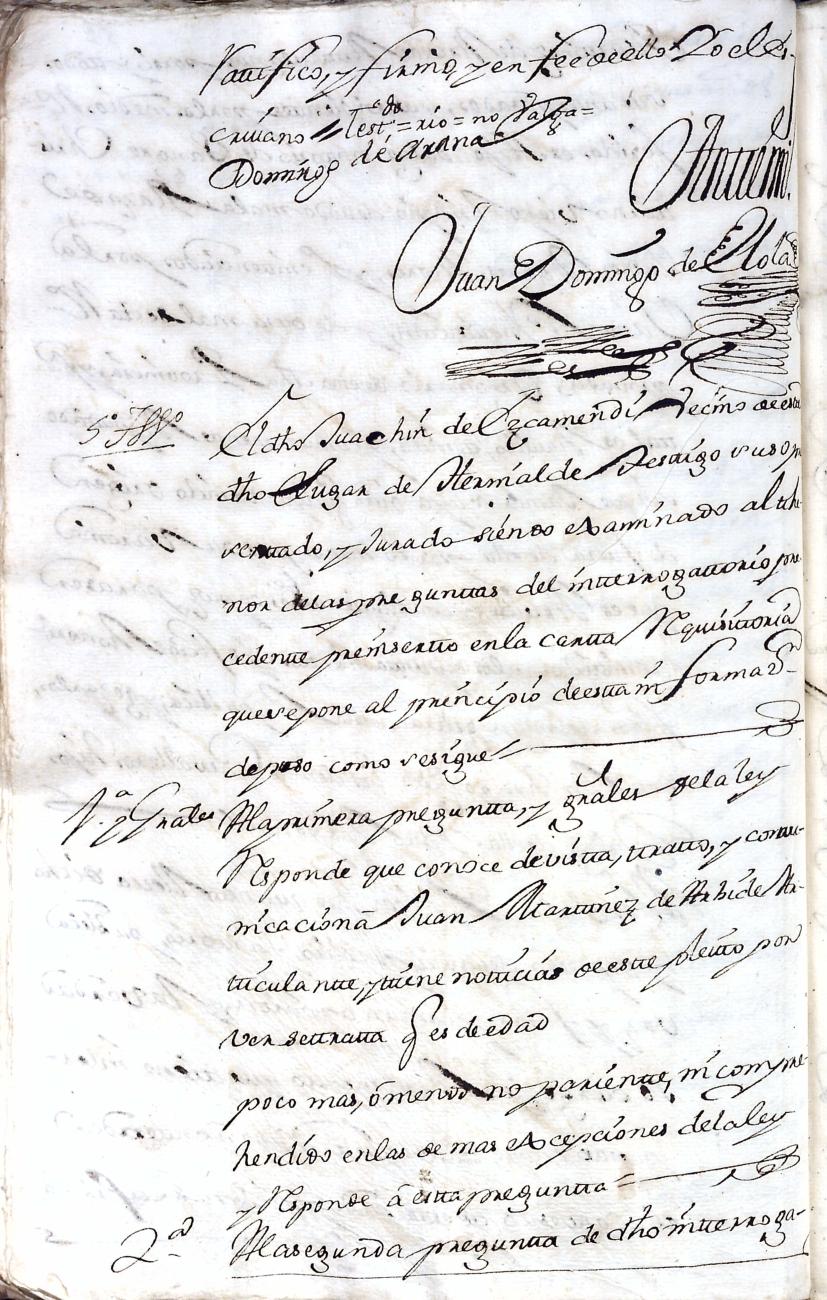 Ratifico, y firmo, y en fee de ello Yo el es
crivano = test.do = rio = no Valga =
Domingo de Arana
Ante mi.
Juan Domingo de Elola
5º Tgo
El dho Juachin de Ezcamendi Vecino de esta
dho Lugar de Hernialde Testigo suso pre
sentado, y Jurado siendo examinado al the
nor de las preguntas del interrogattorio pre
cedente preinserto en la carta Requisitoria
que se pone al principio de esta informaon
depuso como se sigue =
1.ª y Grales
A la primera pregunta, y grales de la ley
Responde que conoce de vista, tratto, y comu
nicacion a Juan Martinez de Arbide Ar-
ticulante, y tiene noticias de este pleito por
ver se tratta q es de edad
poco mas, ó menos no pariente, ni compre
hendido en las demas excepciones de la ley
y Responde á esta pregunta =
2ª
A la segunda pregunta de dho interroga-